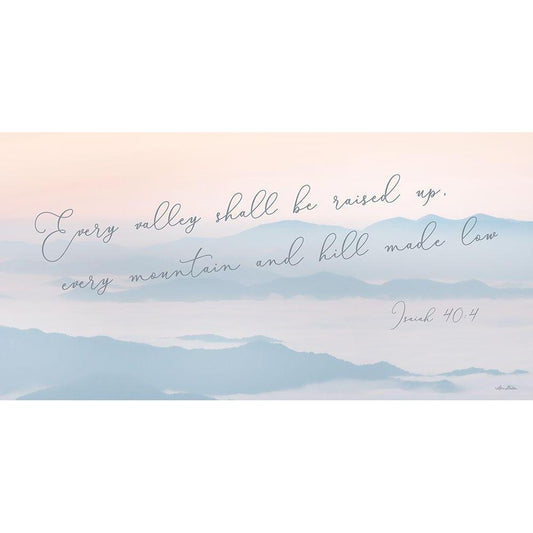 Every valley shall be raised up,
every mountain and hill made low
Isaiah 40:4